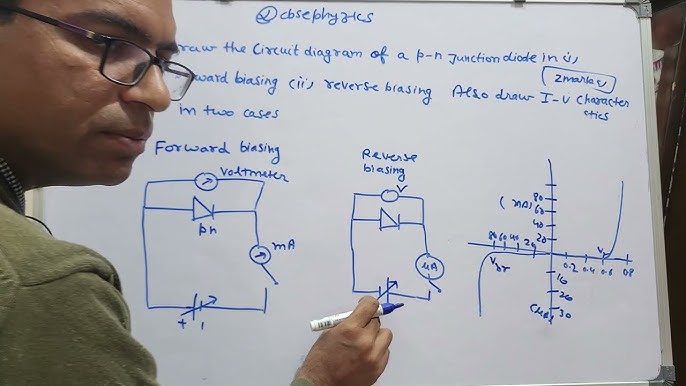 @cbsephyzics
raw the Circuit diagram of a p-n junction diode in (i),
ward biasing (ii), reverse biasing Also draw I-V character
stics
2marks
in two cases
Forward biasing
Reverse
biasing
voltmeter
V
pn
mA
μA
+
(mA)
80
60
40
20
80 60 40 20
V
0.2 0.4 0.6 0.8
Vbr
30